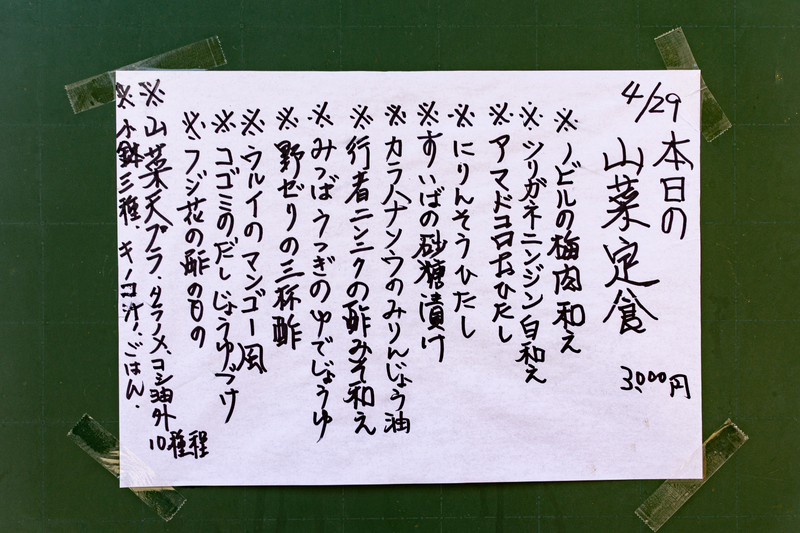 4/29 本日の
山菜定食
3,000円
※ノビルの梅肉和え
※ツリガネニンジン白和え
※アマドコロおひたし
※にりんそうひたし
※すいばの砂糖漬け
※カラハナソウのみりんじょう油
※行者ニンニクの酢みそ和え
※みつばうつぎのゆでじょうゆ
※野ゼリの三杯酢
※ウルイのマンゴー風
※コゴミのだしじょうゆづけ
※フジ花の酢のもの
※山菜天プラ、タラノメ、コシ油外10種程
※小鉢三種、キノコ汁、ごはん、